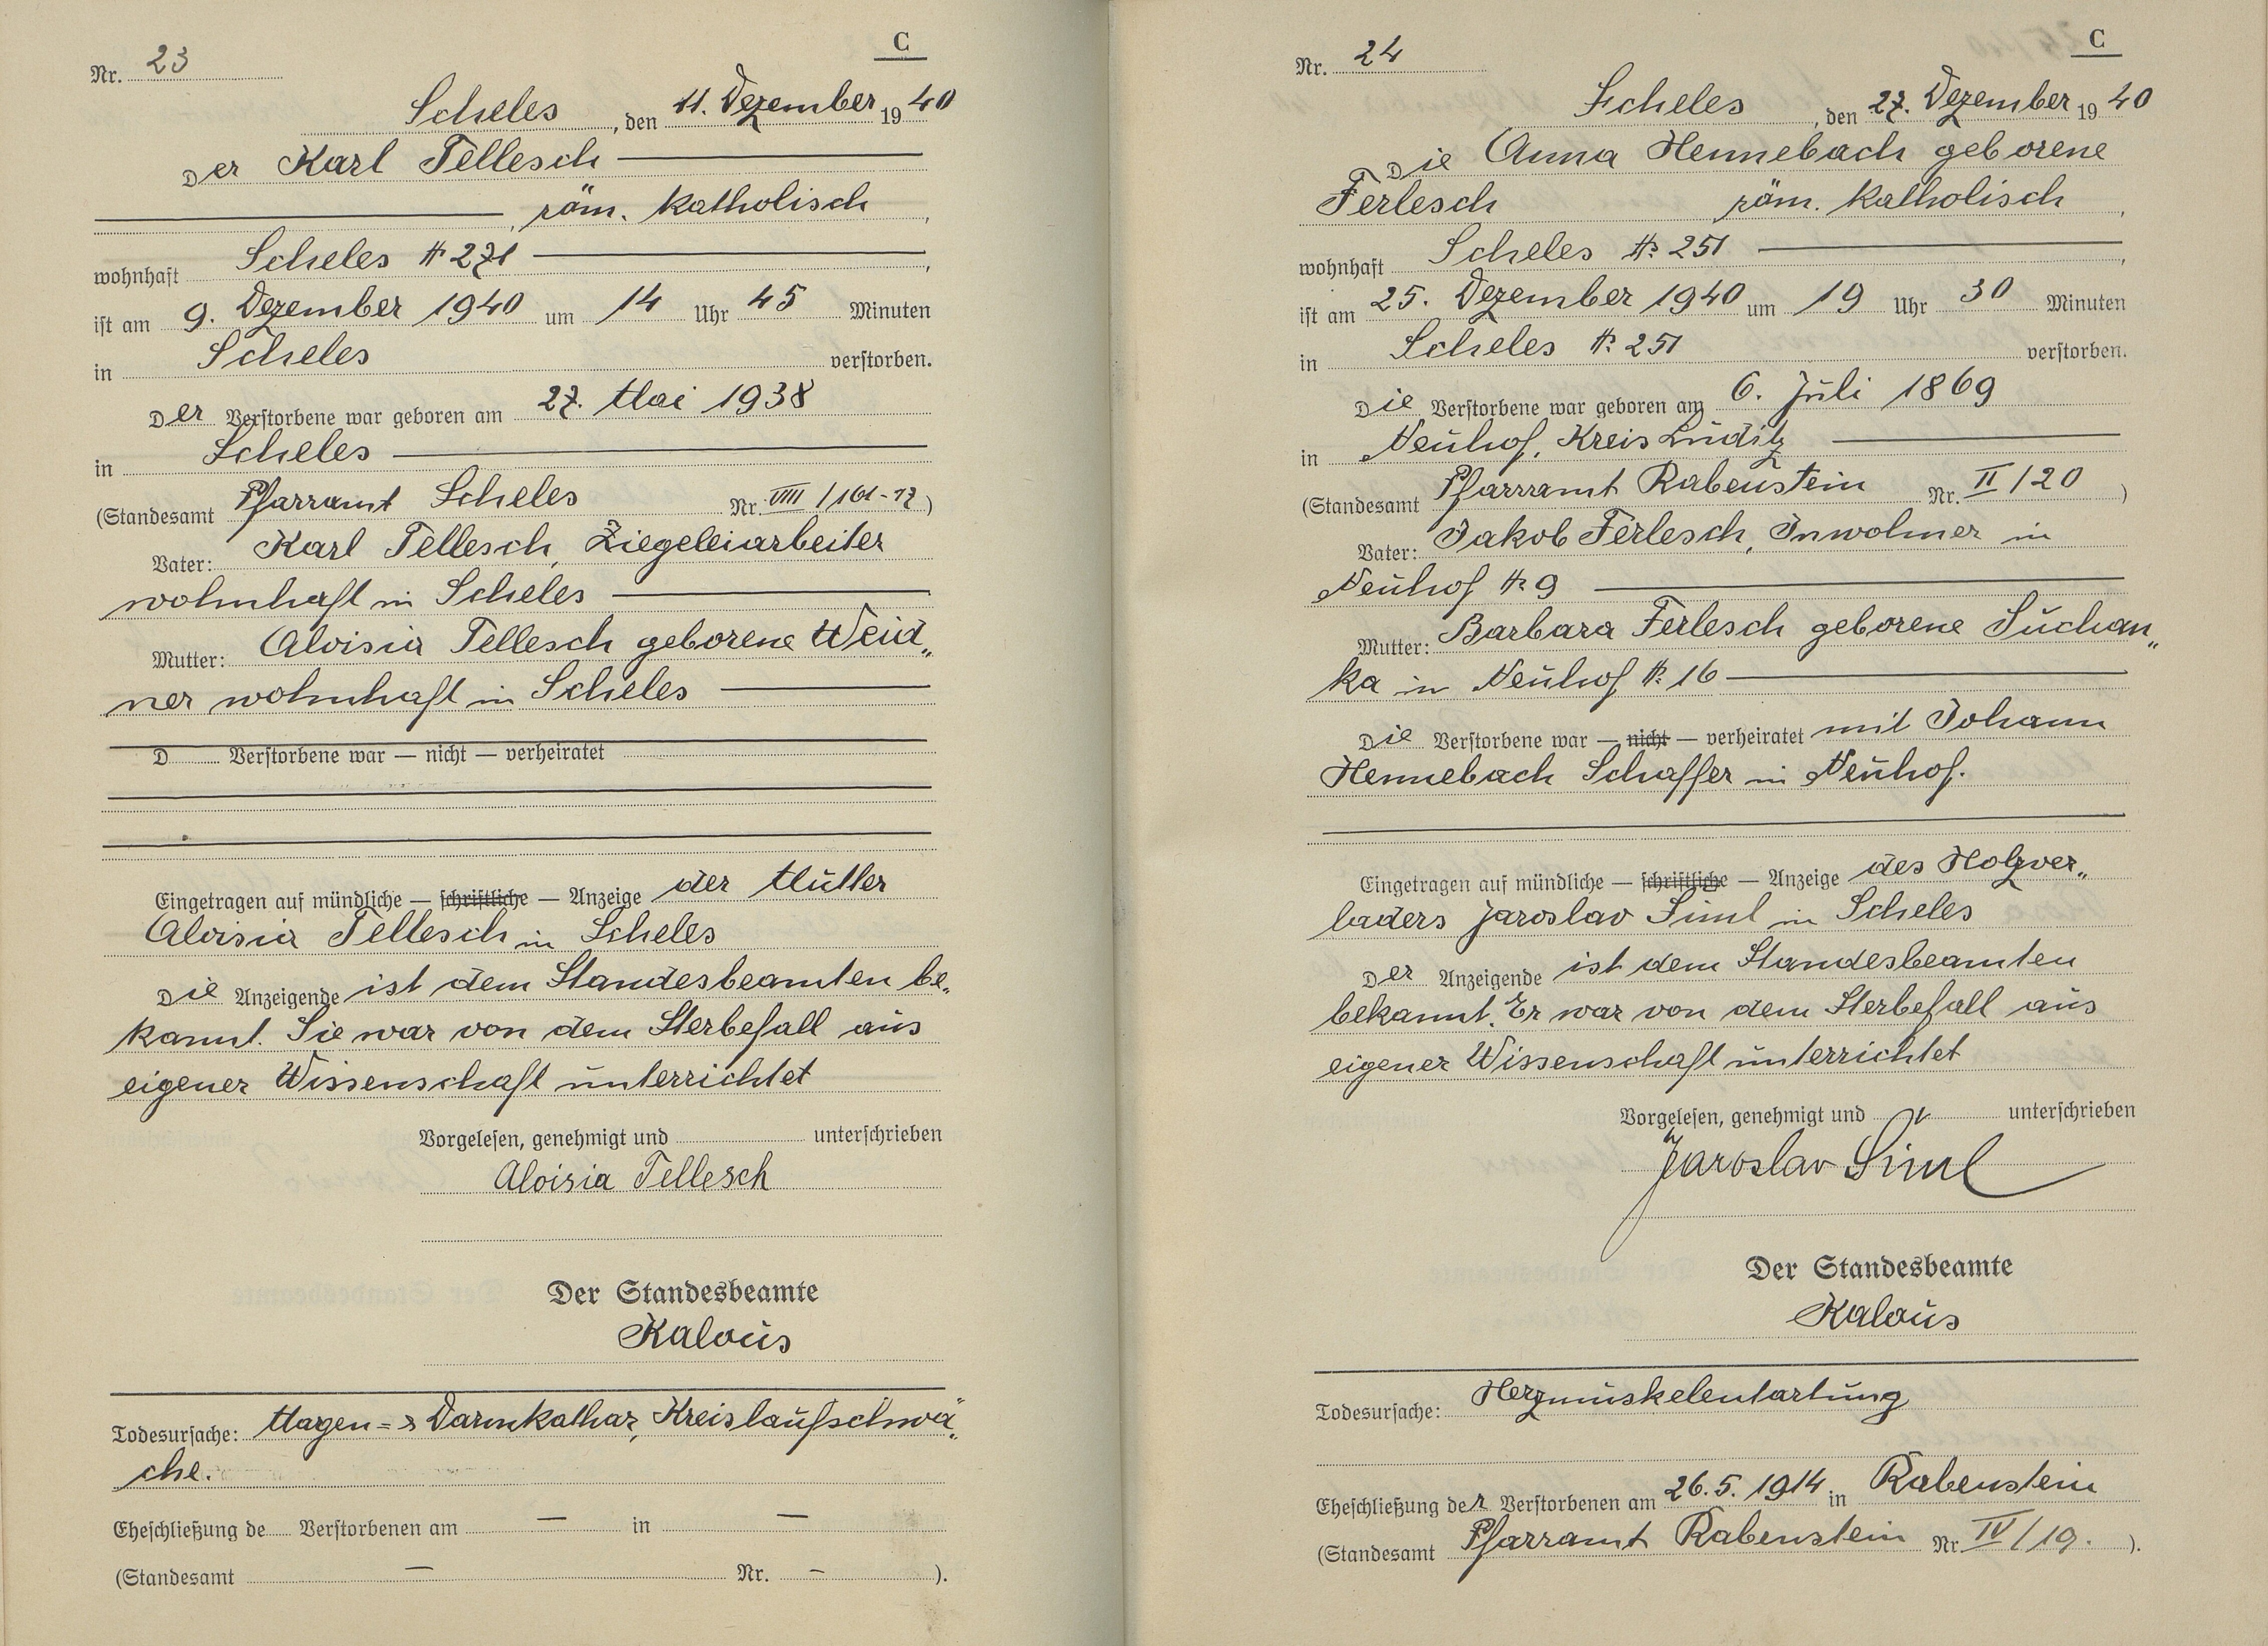 C
Nr. 23
Scheles, den 11. Dezember 1940
Der Karl Tellesch
röm. katholisch,
wohnhaft Scheles № 271,
ist am 9. Dezember 1940 um 14 Uhr 45 Minuten
in Scheles verstorben.
Der Verstorbene war geboren am 27. Mai 1938
in Scheles
(Standesamt Pfarramt Scheles Nr. VIII / 161-17)
Vater: Karl Tellesch, Ziegeleiarbeiter
wohnhaft in Scheles
Mutter: Aloisia Tellesch geborene Weid„
ner wohnhaft in Scheles
D Verstorbene war — nicht — verheiratet
Eingetragen auf mündliche — schriftliche — Anzeige der Mutter
Aloisia Tellesch in Scheles
Die Anzeigende ist dem Standesbeamten be„
kannt. Sie war von dem Sterbefall aus
eigener Wissenschaft unterrichtet
Vorgelesen, genehmigt und unterschrieben
Aloisia Tellesch
Der Standesbeamte
Kalous
Todesursache: Magen= Darmkathar, Kreislaufschwä„
che.
Eheschließung de Verstorbenen am — in —
(Standesamt — Nr. — ).
C
Nr. 24
Scheles, den 27. Dezember 1940
Die Anna Hennebach geborene
Ferlesch röm. katholisch,
wohnhaft Scheles № 251,
ist am 25. Dezember 1940 um 19 Uhr 30 Minuten
in Scheles № 251 verstorben.
Die Verstorbene war geboren am 6. Juli 1869
in Neuhof, Kreis Luditz
(Standesamt Pfarrramt Rabenstein Nr. II / 20)
Vater: Jakob Ferlesch, Inwohner in
Neuhof № 9
Mutter: Barbara Ferlesch geborene Suchan„
ka in Neuhof № 16
Die Verstorbene war — nicht — verheiratet mit Johann
Hennebach Schaffer in Neuhof.
Eingetragen auf mündliche — schriftliche — Anzeige des Holzver„
laders Jaroslav Siml in Scheles
Der Anzeigende ist dem Standesbeamten
bekannt. Er war von dem Sterbefall aus
eigener Wissenschaft unterrichtet
Vorgelesen, genehmigt und unterschrieben
Jaroslav Šiml
Der Standesbeamte
Kalous
Todesursache: Herzmuskelentartung
Eheschließung der Verstorbenen am 26.5.1914 in Rabenstein
(Standesamt Pfarramt Rabenstein Nr. IV / 19. ).